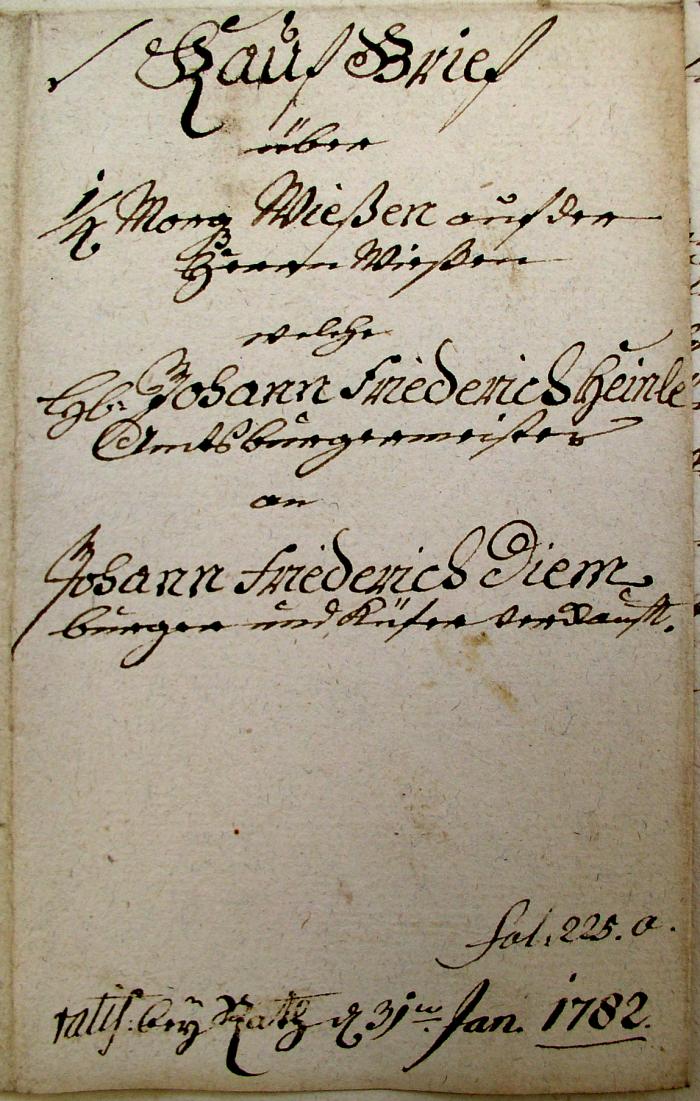 Kauf Brief
über
1/4 Morg. Wießen auf der
Herrn Wießen
welche
Johann Friederich Heinle
Amtsburgermeister
an
Johann Friederich Diem
burger und Küfer verkauft.
fol. 225. a.
ratif. bey Rath d. 31ten Jan. 1782.